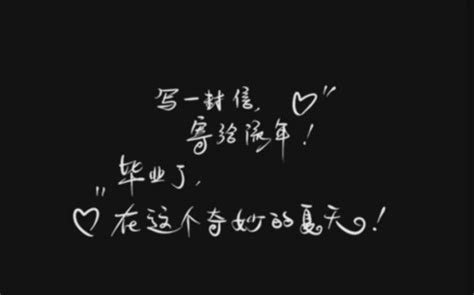 写一封信,
寄给流年!
毕业了,
在这个奇妙的夏天!